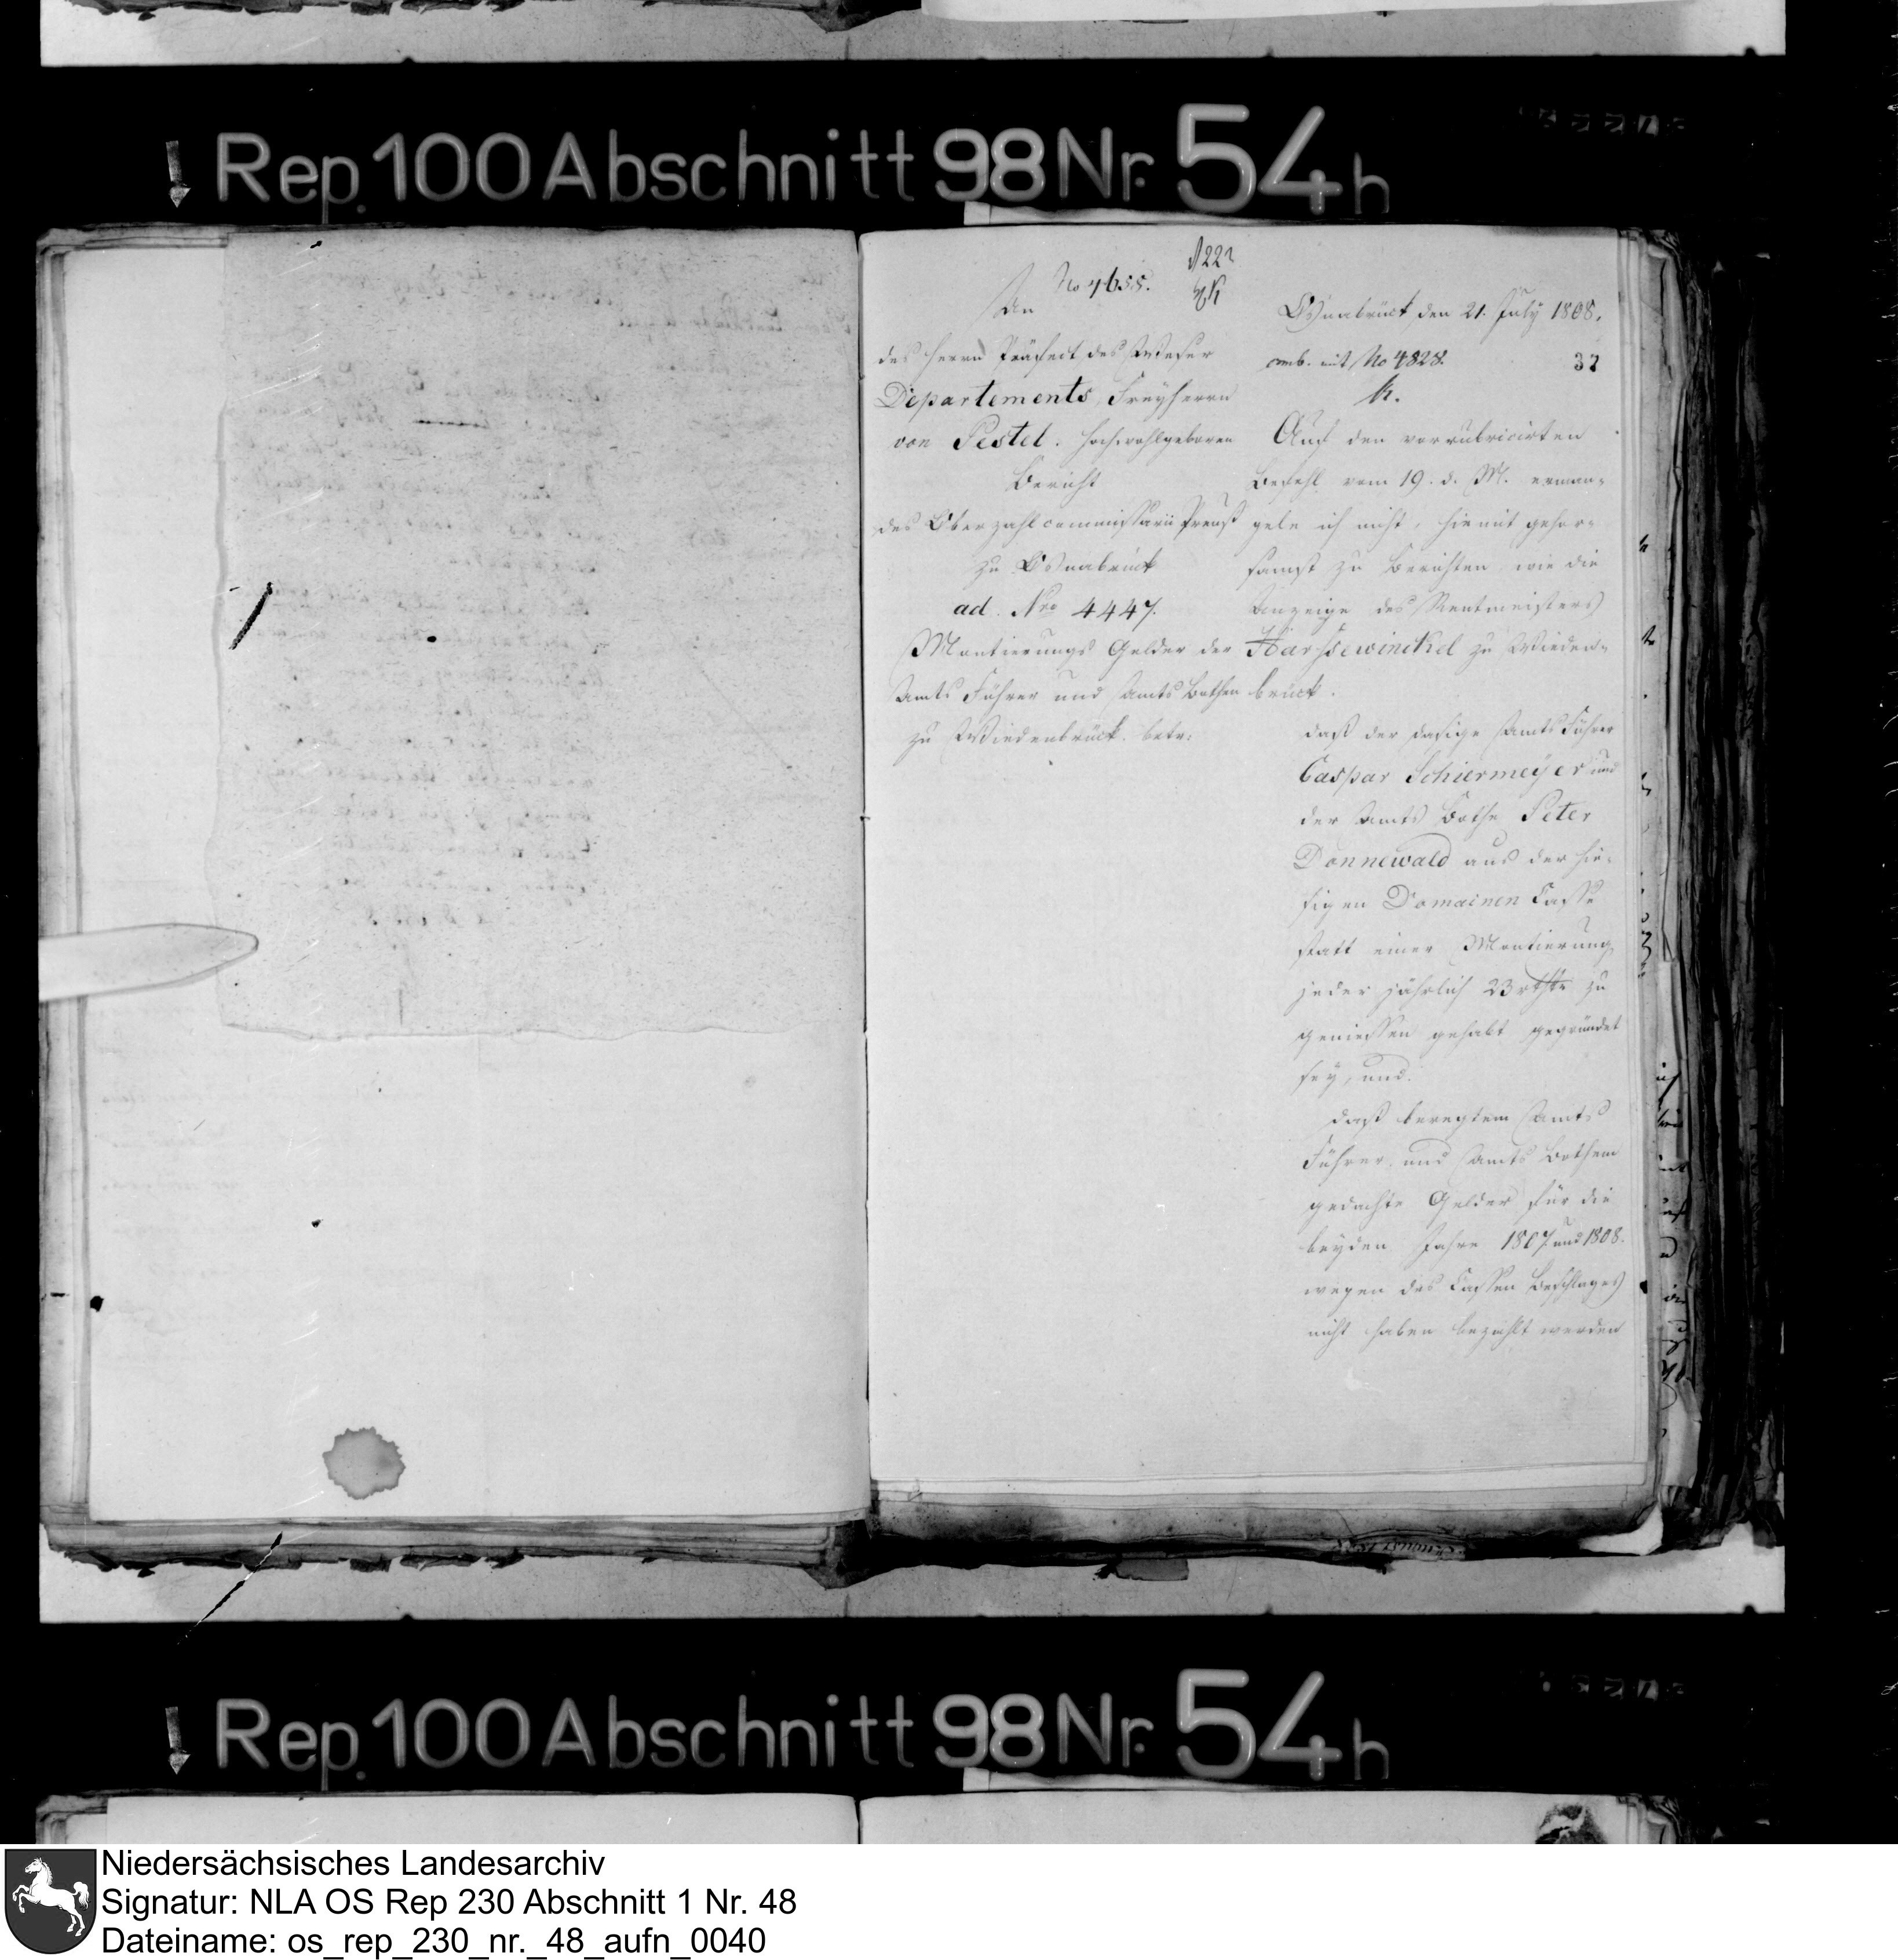 Rep. 100 Abschnitt 98 Nr. 54 h
No 4655.
An
des Herrn Präfect des Weser
Departements, Freyherrn
von Pestel. Hochwohlgeboren
Bericht
des Oberzahlcommissarii Preuß
zu Osnabrück
ad. Nro 4447.
Montierungs Gelder der
Amts Führer und Amts Bothen
zu Wiedenbrück. betr:
Osnabrück, den 21. July 1808.
comb. mit No 4828.
37
Auf den vorrubricirten
Befehl vom 19. d. M. erman-
gele ich nicht, hiemit gehor-
samst zu berichten, wie die
Anzeige des Rentmeisters
Harsewinckel zu Wieden-
brück.
daß der dasige Amts Führer
Caspar Schiermeyer und
der Amts Bothe Peter
Donnewald aus der hie-
sigen Domainen Casse
statt einer Montierung
jeder jährlich 23 rthlr zu
geniessen gehabt gegründet
sey, und.
daß beregtem Amts
Führer, und Amts Bothem
gedachte Gelder für die
beyden Jahre 1807 und 1808.
wegen des Cassen Beschlages
nicht haben bezahlt werden
Rep. 100 Abschnitt 98 Nr. 54 h
Niedersächsisches Landesarchiv
Signatur: NLA OS Rep 230 Abschnitt 1 Nr. 48
Dateiname: os_rep_230_nr._48_aufn_0040